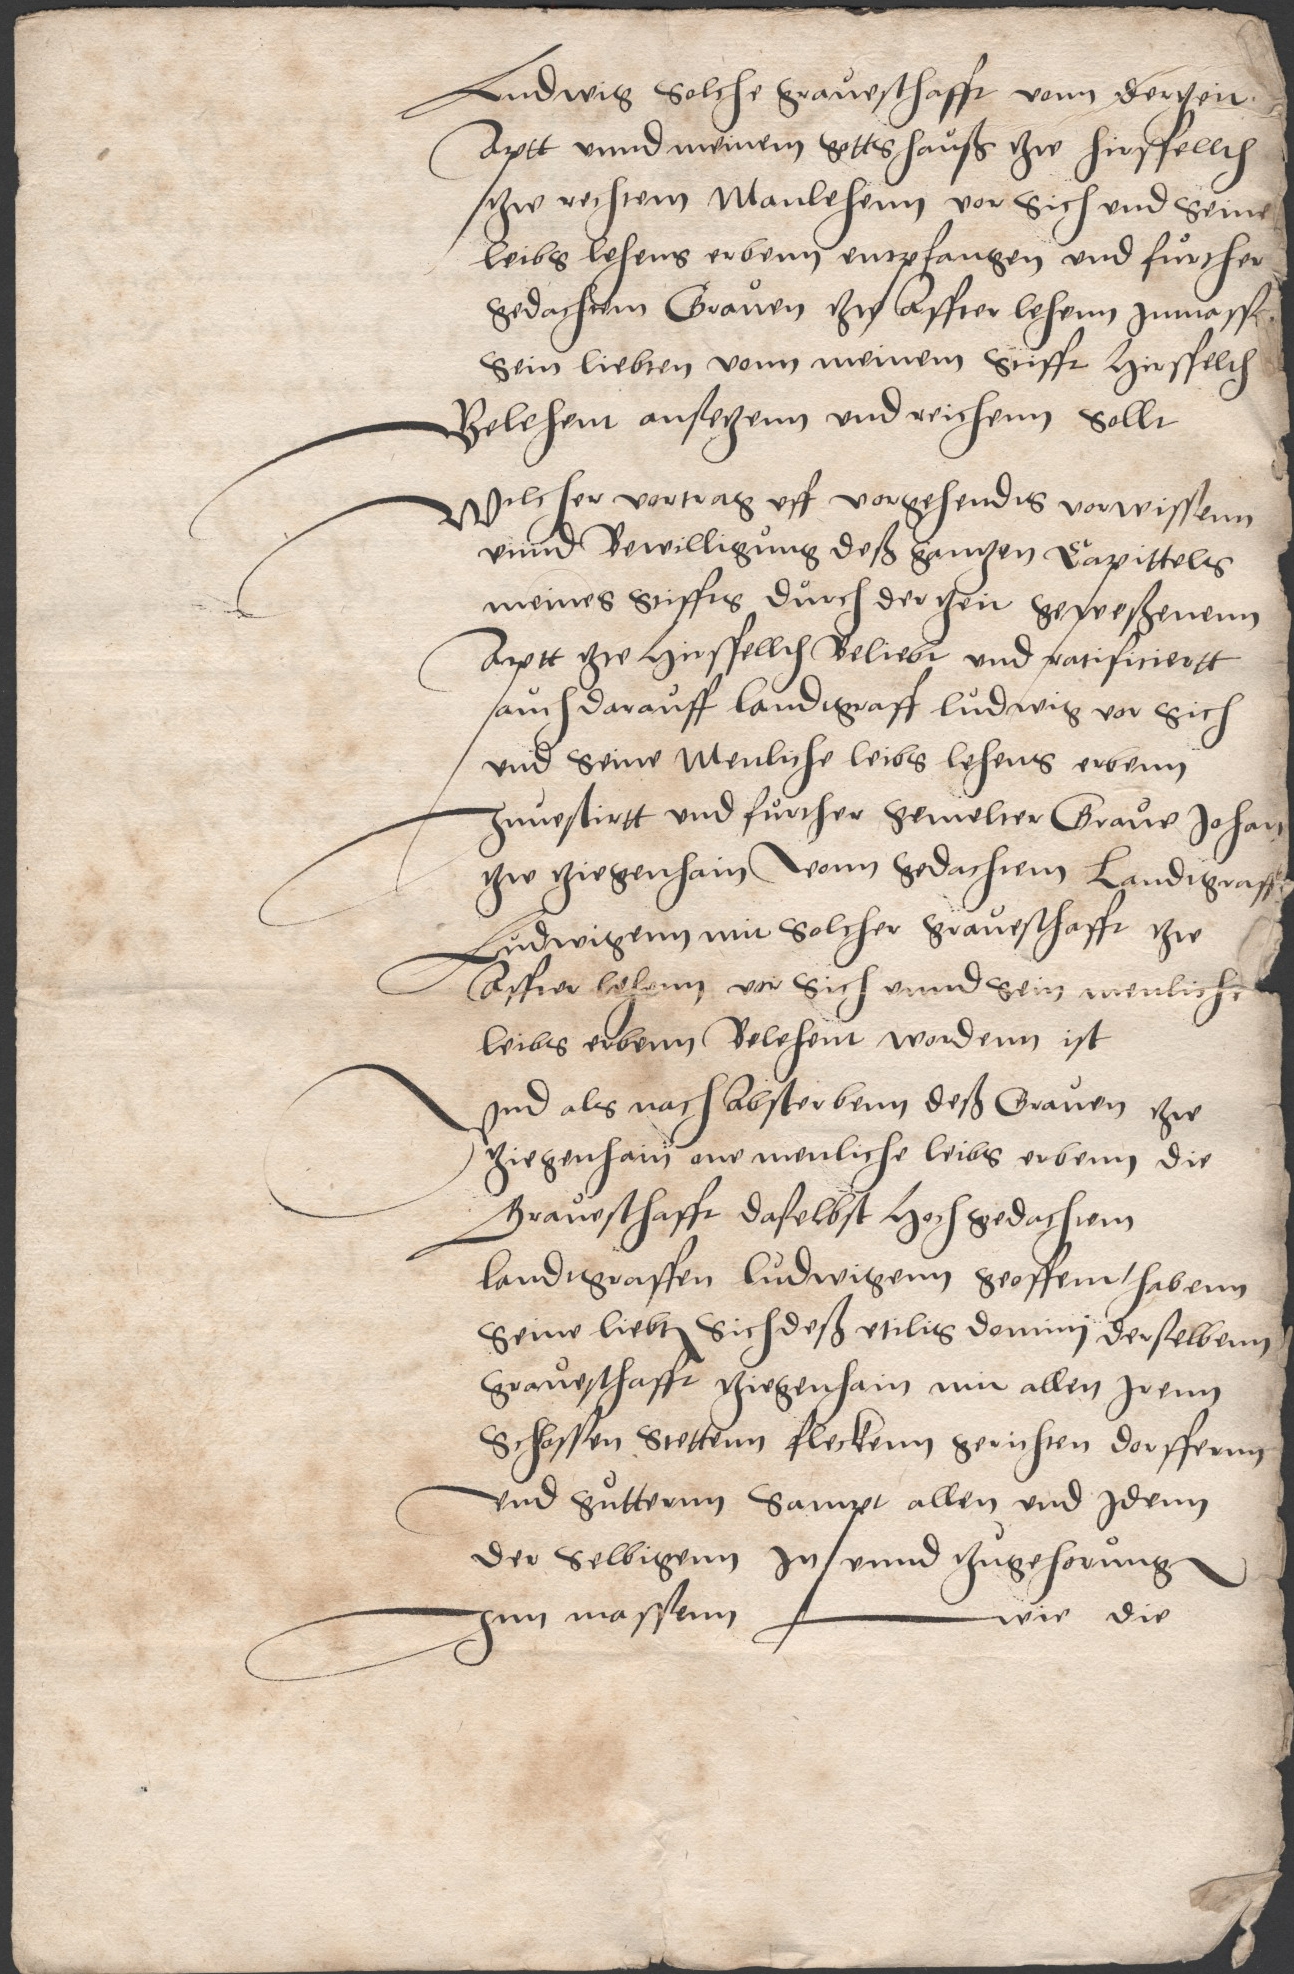 Ludwig solche graueschafft vonn derzeit
Aptt vnnd meinem gottshauß tzw hirsfelltt
tzw rechtem Manlehenn vor sich vnd seine
leibs lehens erbenn entpfangen vnd fürther
gedachtem Grauen tzw Affter lehenn Inmass
sein liebten vonn meinem Stifft Hirsfeltt
Belehent ansetzenn vnd reichenn sollt
Wilcher vortrag vff vorgehendts vorwissenn
vnnd Bewilligung deß gantzen Capittels
meines Stiffts durch der zeit geweßenenn
Aptt tzw Hirsfelltt Beliebt vnd ratificiertt
auch darauff landtgraff ludwig vor sich
vnd seine Menliche leibs lehens erbenn
Inuestirtt vnd further gemelter Graue Johan
tzw tziegenhain Vonn gedachtem Landtgraff
Ludwigenn mit solcher graueschafft tzw
Affter lehenn vor sich vnnd sein menliche
leibs erbenn Belehent wordenn ist
Vnd als nach Absterbenn deß Grauen tzw
tziegenhain one menliche leibs erbenn die
Graueschafft daselbst Hochgedachtem
landtgraffen ludwigenn geoffent habenn
seine liebt sich deß vtilis dominij derselbenn
graueschafft tziegenhain mit allen Irenn
Schlossen Stettenn fleckenn gerichten dorffernn
vnd guttern Sampt allen vnd Idenn
der selbigenn In vnnd tzugehorung
Inn massenn wie die